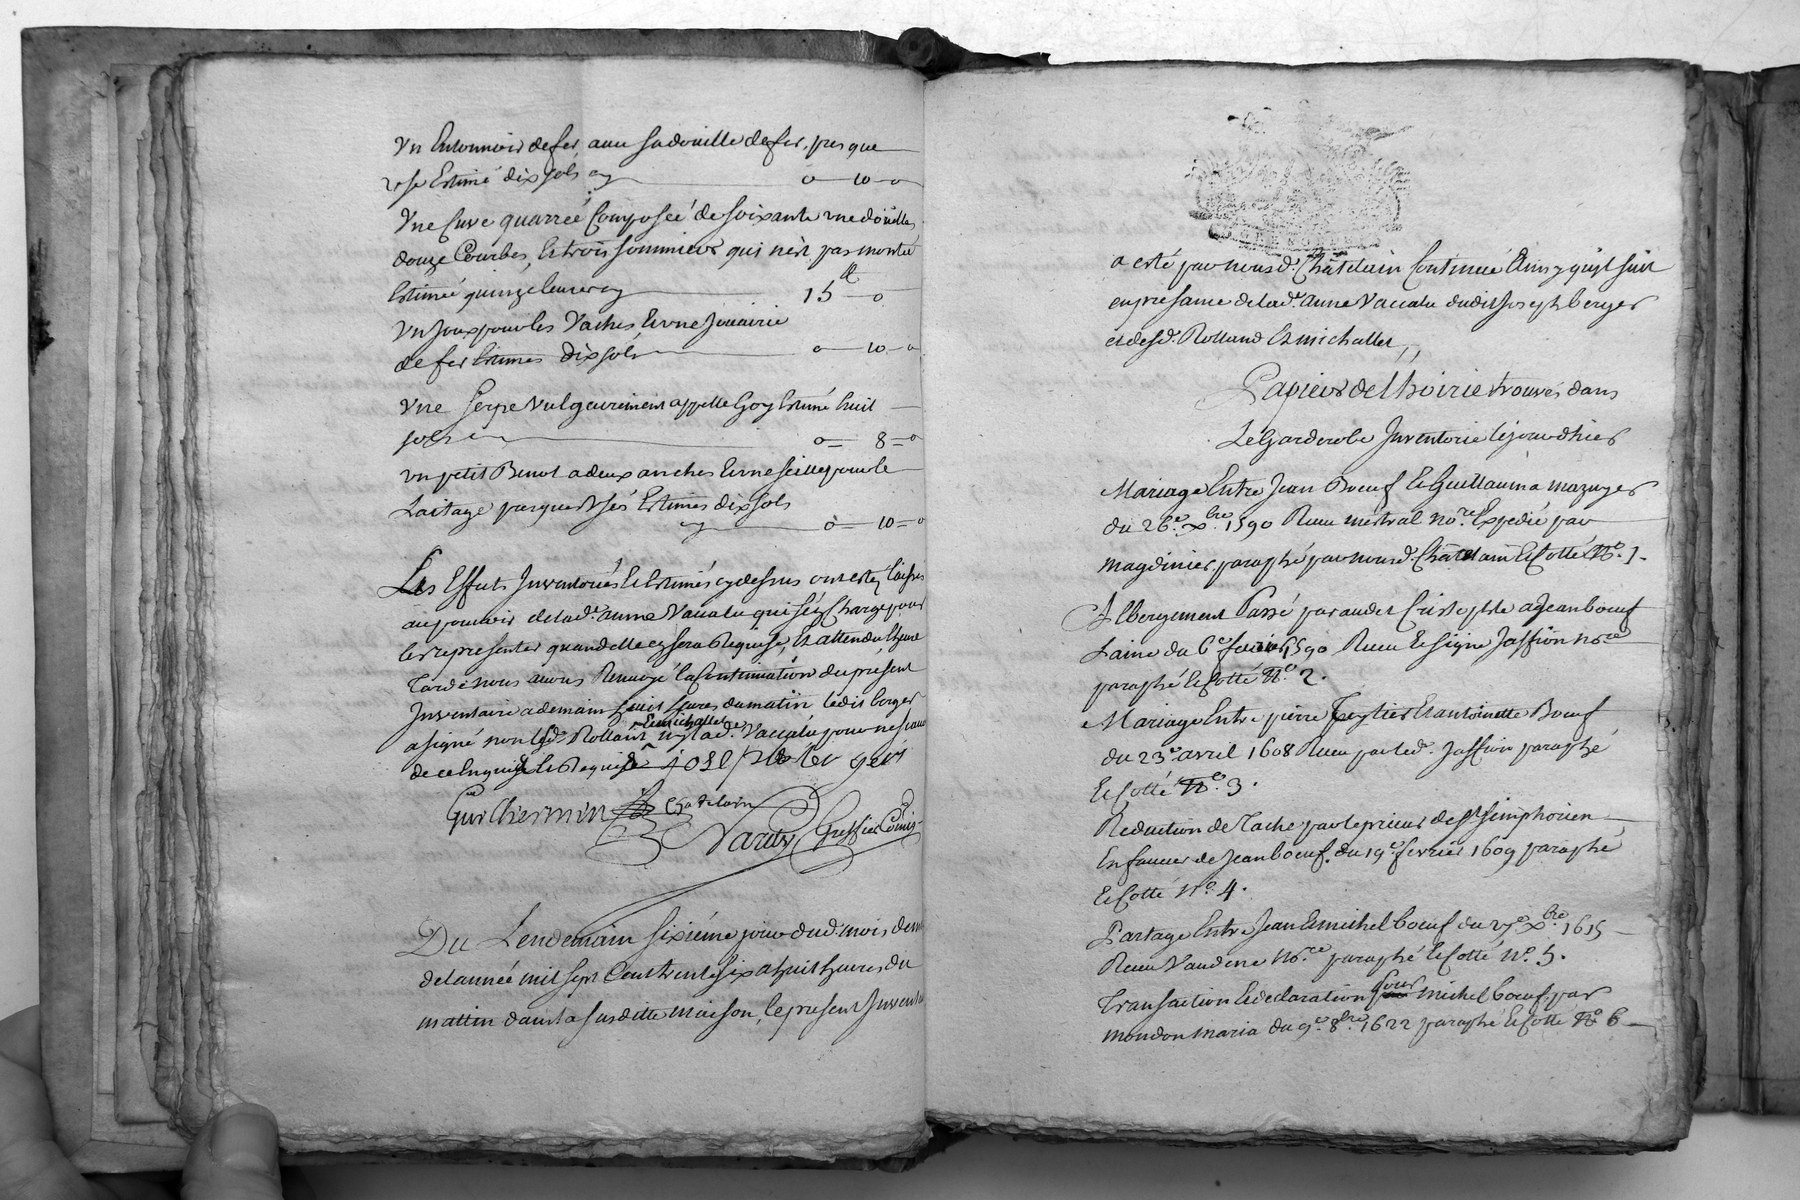 Un Entonnoir de fer avec sa douille de fer, presque
usé Estimé dix sols cy 0 — 10 — 0
Une Cuve quarreé Composeé de soixante une doüelles
douze Courbes, Et trois sommiers qui n'est pas monteé
Estimeé quinze livres cy 15 ll — 0
Un Joux pour les Vaches Et vne Jouairie
de fer Estimés dix sols 0 — 10 — 0
Vne serpe vulgairement appellé Goy Estimé huit
sols cy 0 = 8 = 0
un petit Benot a deux anches Et vne seille pour le
Laitage presque Usés Estimés dix sols
cy 0 = 10 = 0
Les Effets Inventoriés Et Estimés cy dessus ont estez laissés
au pouvoir de lad.e anne Vacalu qui s'en Charge pour
les representer quand elle en sera Requise, Et attendu l'heure
tarde nous avons Renvoyé la Continuation du présent
Inventaire a demain huit heures du matin led.it berger
a signé non led.t Rolland Et michallet ny lad.e Vacalu pour ne sçavoir
de ce Enquis Et Requis Josept berger
Guichermin Chatelain
Vardy Greffier Comis
Du Lendemain sixiéme jour dud. mois de
de l'année mil sept Cent trente six a huit heures du
mattin dans la susditte maison, le present Inventaire
GRENOBLE
a esté par nous d. Châtelain Continué Ainsy qu'il suit
en présance de lad.e anne Vacalu dudit Joseph berger
et desd. Rolland Et michallet,,
Papiers de l'hoirie trouvés dans
Le Garderobe Inventorié le jour d'hier
Mariage Entre Jean Bœuf Et Guillauma mazuyer
du 26.e x.bre 1590 Receu mestral no.re Expedié par
magdinier paraphé par nous d. Châtelain Et Cotté N.o 1.
Albergement Passé par audet Cristophle a Jean bœuf
Laine du 6.e fevrier 1590 Receu Et signé Jassion no.re
paraphé Et Cotté N.o 2.
Mariage Entre pierre Teytier Et antoinette Bœuf
du 23.e avril 1608 Receu par led. Jassion paraphé
Et Cotté N.o 3.
Reduction de Tache par le prieur de S.t simphorien
En faveur de Jean bœuf. du 19.e fevrier 1609 paraphé
Et Cotté N.o 4.
Partage Entre Jean Et michel bœuf du 27.e x.bre 1615
Receu Vaudene No.re paraphé Et Cotté N.o 5.
Transaction Et declaration pour michel bœuf, par
mondon maria du 9.e 8.bre 1622 paraphé Et Cotté N.o 6